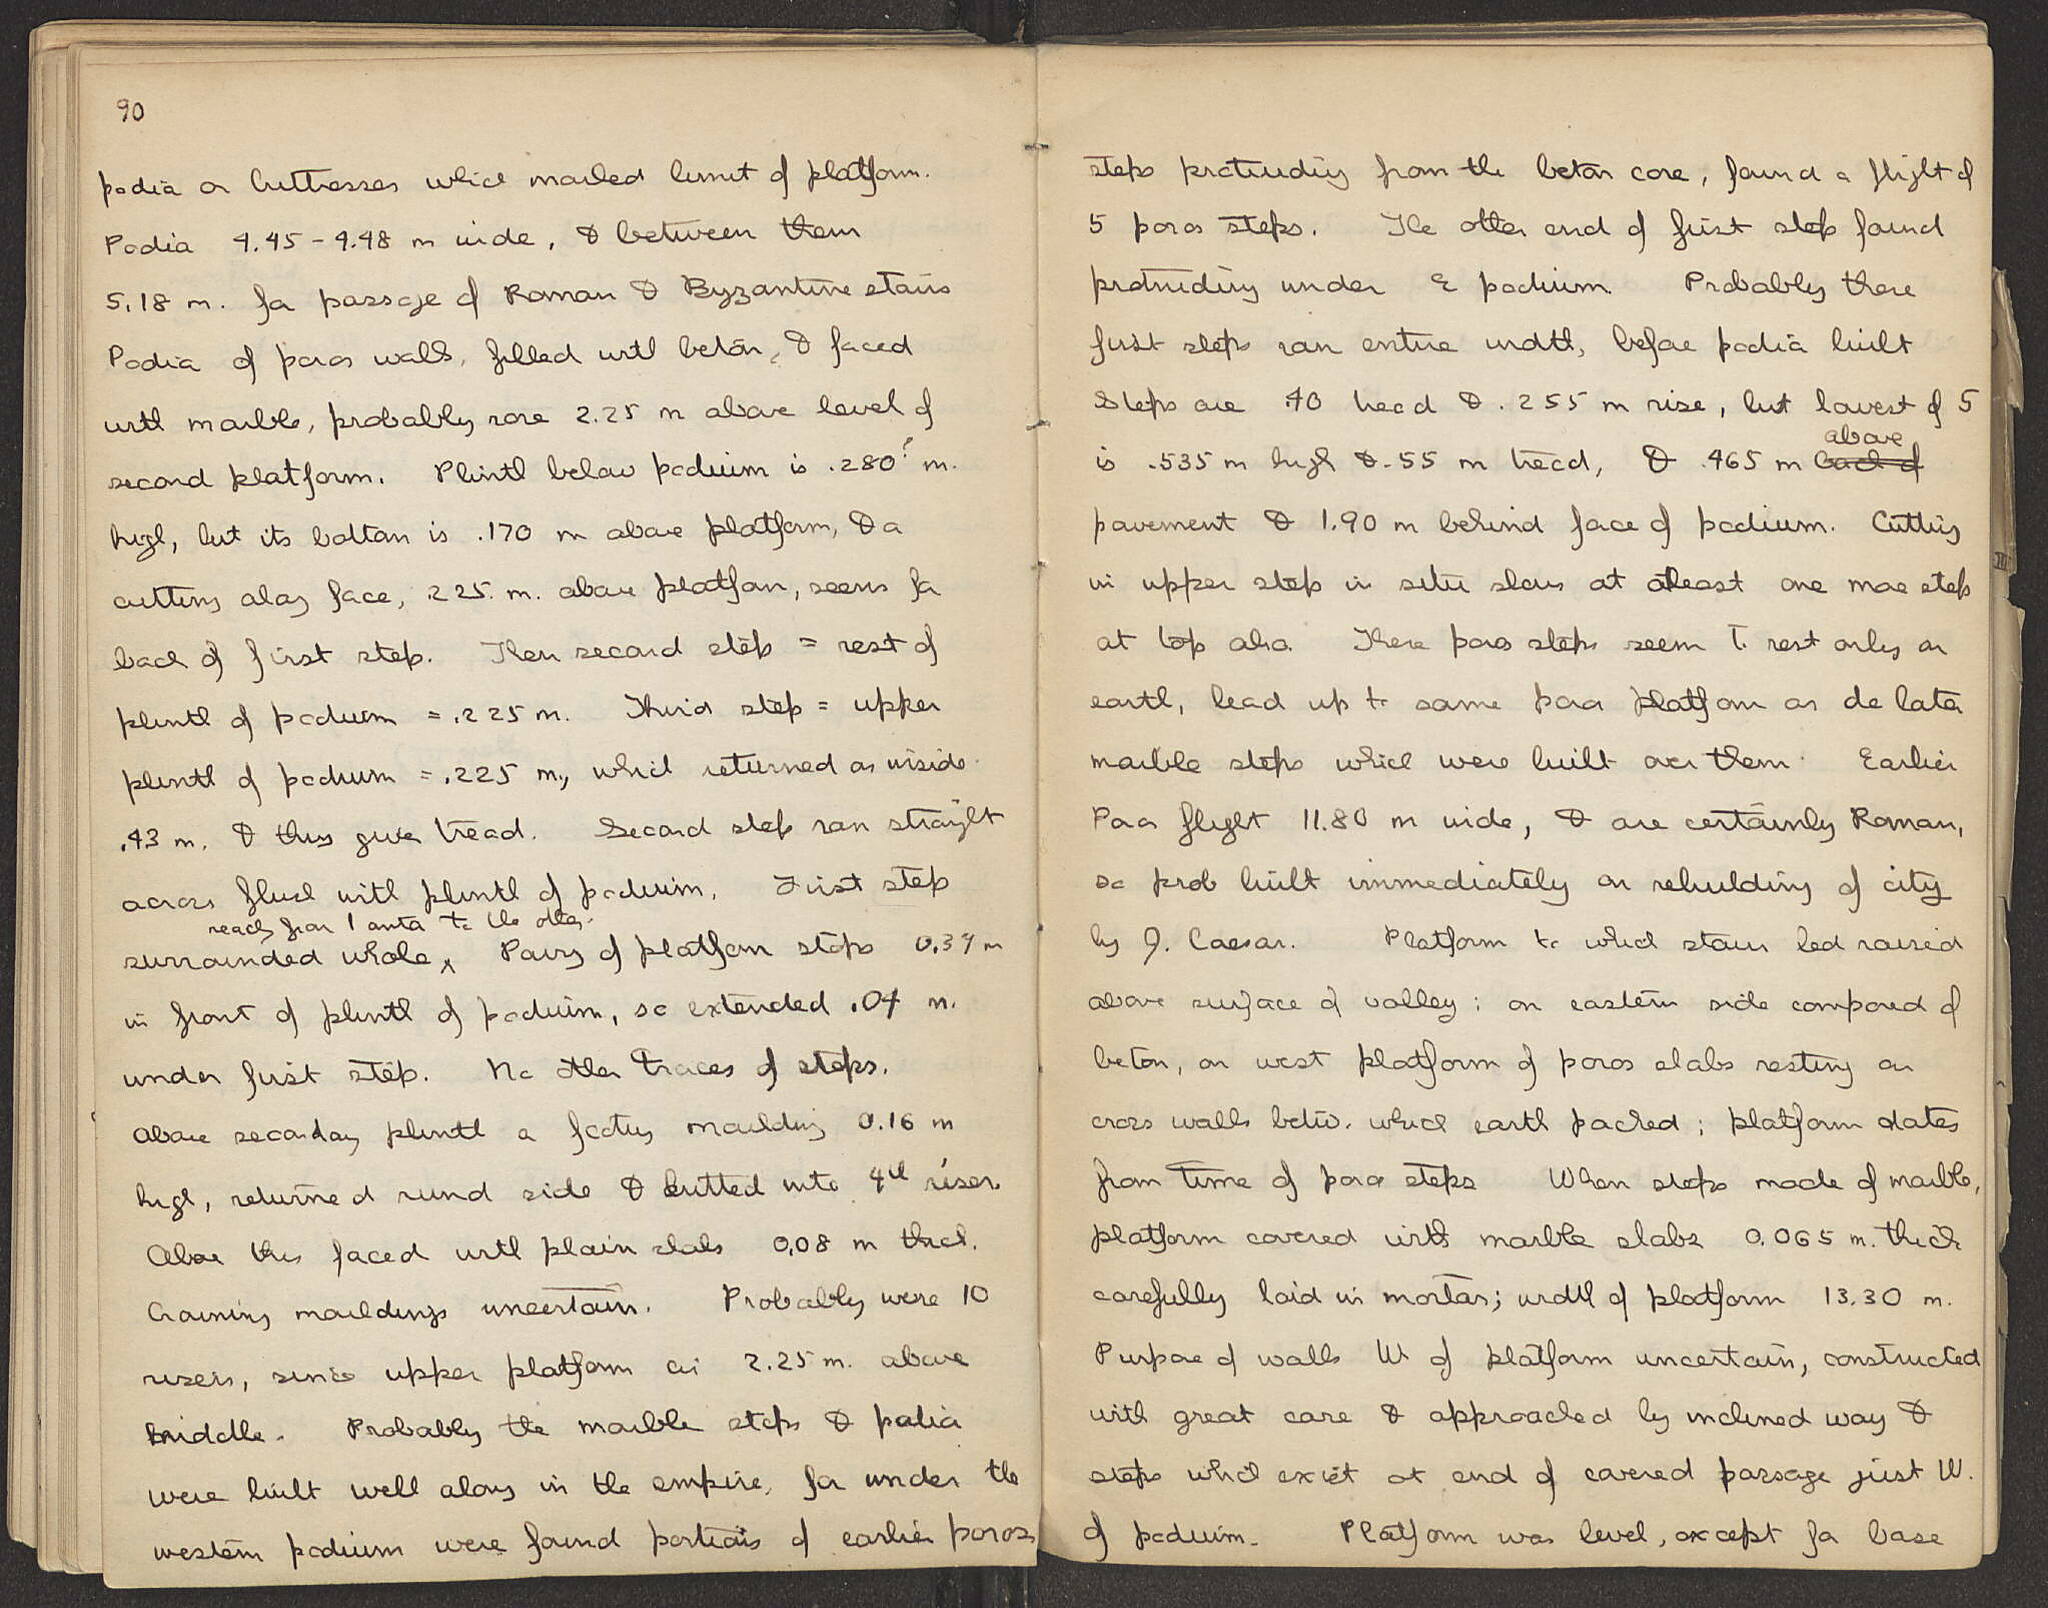 90
podia or buttresses which marked limit of platform.
Podia 4.45-4.48 m wide, & between them
5.18 m. for passage of Roman & Byzantine stairs
Podia of poros walls, filled with beton, & faced
with marble, probably rose 2.25 m above level of
second platform. Plinth below podium is .280? m.
high, but its bottom is .170 m above platform, & a
cutting along face, .225. m. above platform, seems for
back of first step. Then second step = rest of
plinth of podium = .225 m. Third step = upper
plinth of podium = .225 m., which returned on inside
.43 m. & thus give tread. Second step ran straight
across flush with plinth of podium. First step
reachg from 1 anta to the other.
surrounded whole ^ Paving of platform stops 0.37 m
in front of plinth of podium, so extended .04 m.
under first step. No other traces of steps.
Above secondary plinth a footing moulding 0.16 m
high, returned round side & butted into 4th riser
Above this faced with plain slabs 0.08 m thick.
Crowning mouldings uncertain. Probably were 10
risers, since upper platform is 2.25 m. above
middle. Probably the marble steps & podia
were built well along in the empire, for under the
western podium were found portions of earlier poros
steps protruding from the beton core, found a flight of
5 poros steps. The other end of first step found
protruding under E podium. Probably these
first steps ran entire width, before podia built
Steps are .40 tread & .255 m rise, but lowest of 5
above
is .535 m high & .55 m tread, & .465 m back of
pavement & 1.90 m behind face of podium. Cutting
in upper step in situ shows at atleast one more step
at top also. These poros steps seem to rest only on
earth, lead up to same poros platform as do later
marble steps which were built over them. Earlier
Poros flight 11.80 m wide, & are certainly Roman,
so prob built immediately on rebuilding of city
by J. Caesar. Platform to which stairs led raised
above surface of valley; on eastern side composed of
beton, on west platform of poros slabs resting on
cross walls betw. which earth packed; platform dates
from time of poros steps When steps made of marble,
platform covered with marble slabs 0.065 m. thick
carefully laid in mortar; width of platform 13.30 m.
Purpose of walls W of platform uncertain, constructed
with great care & approached by inclined way &
steps which exist at end of covered passage just W.
of podium. Platform was level, except for base